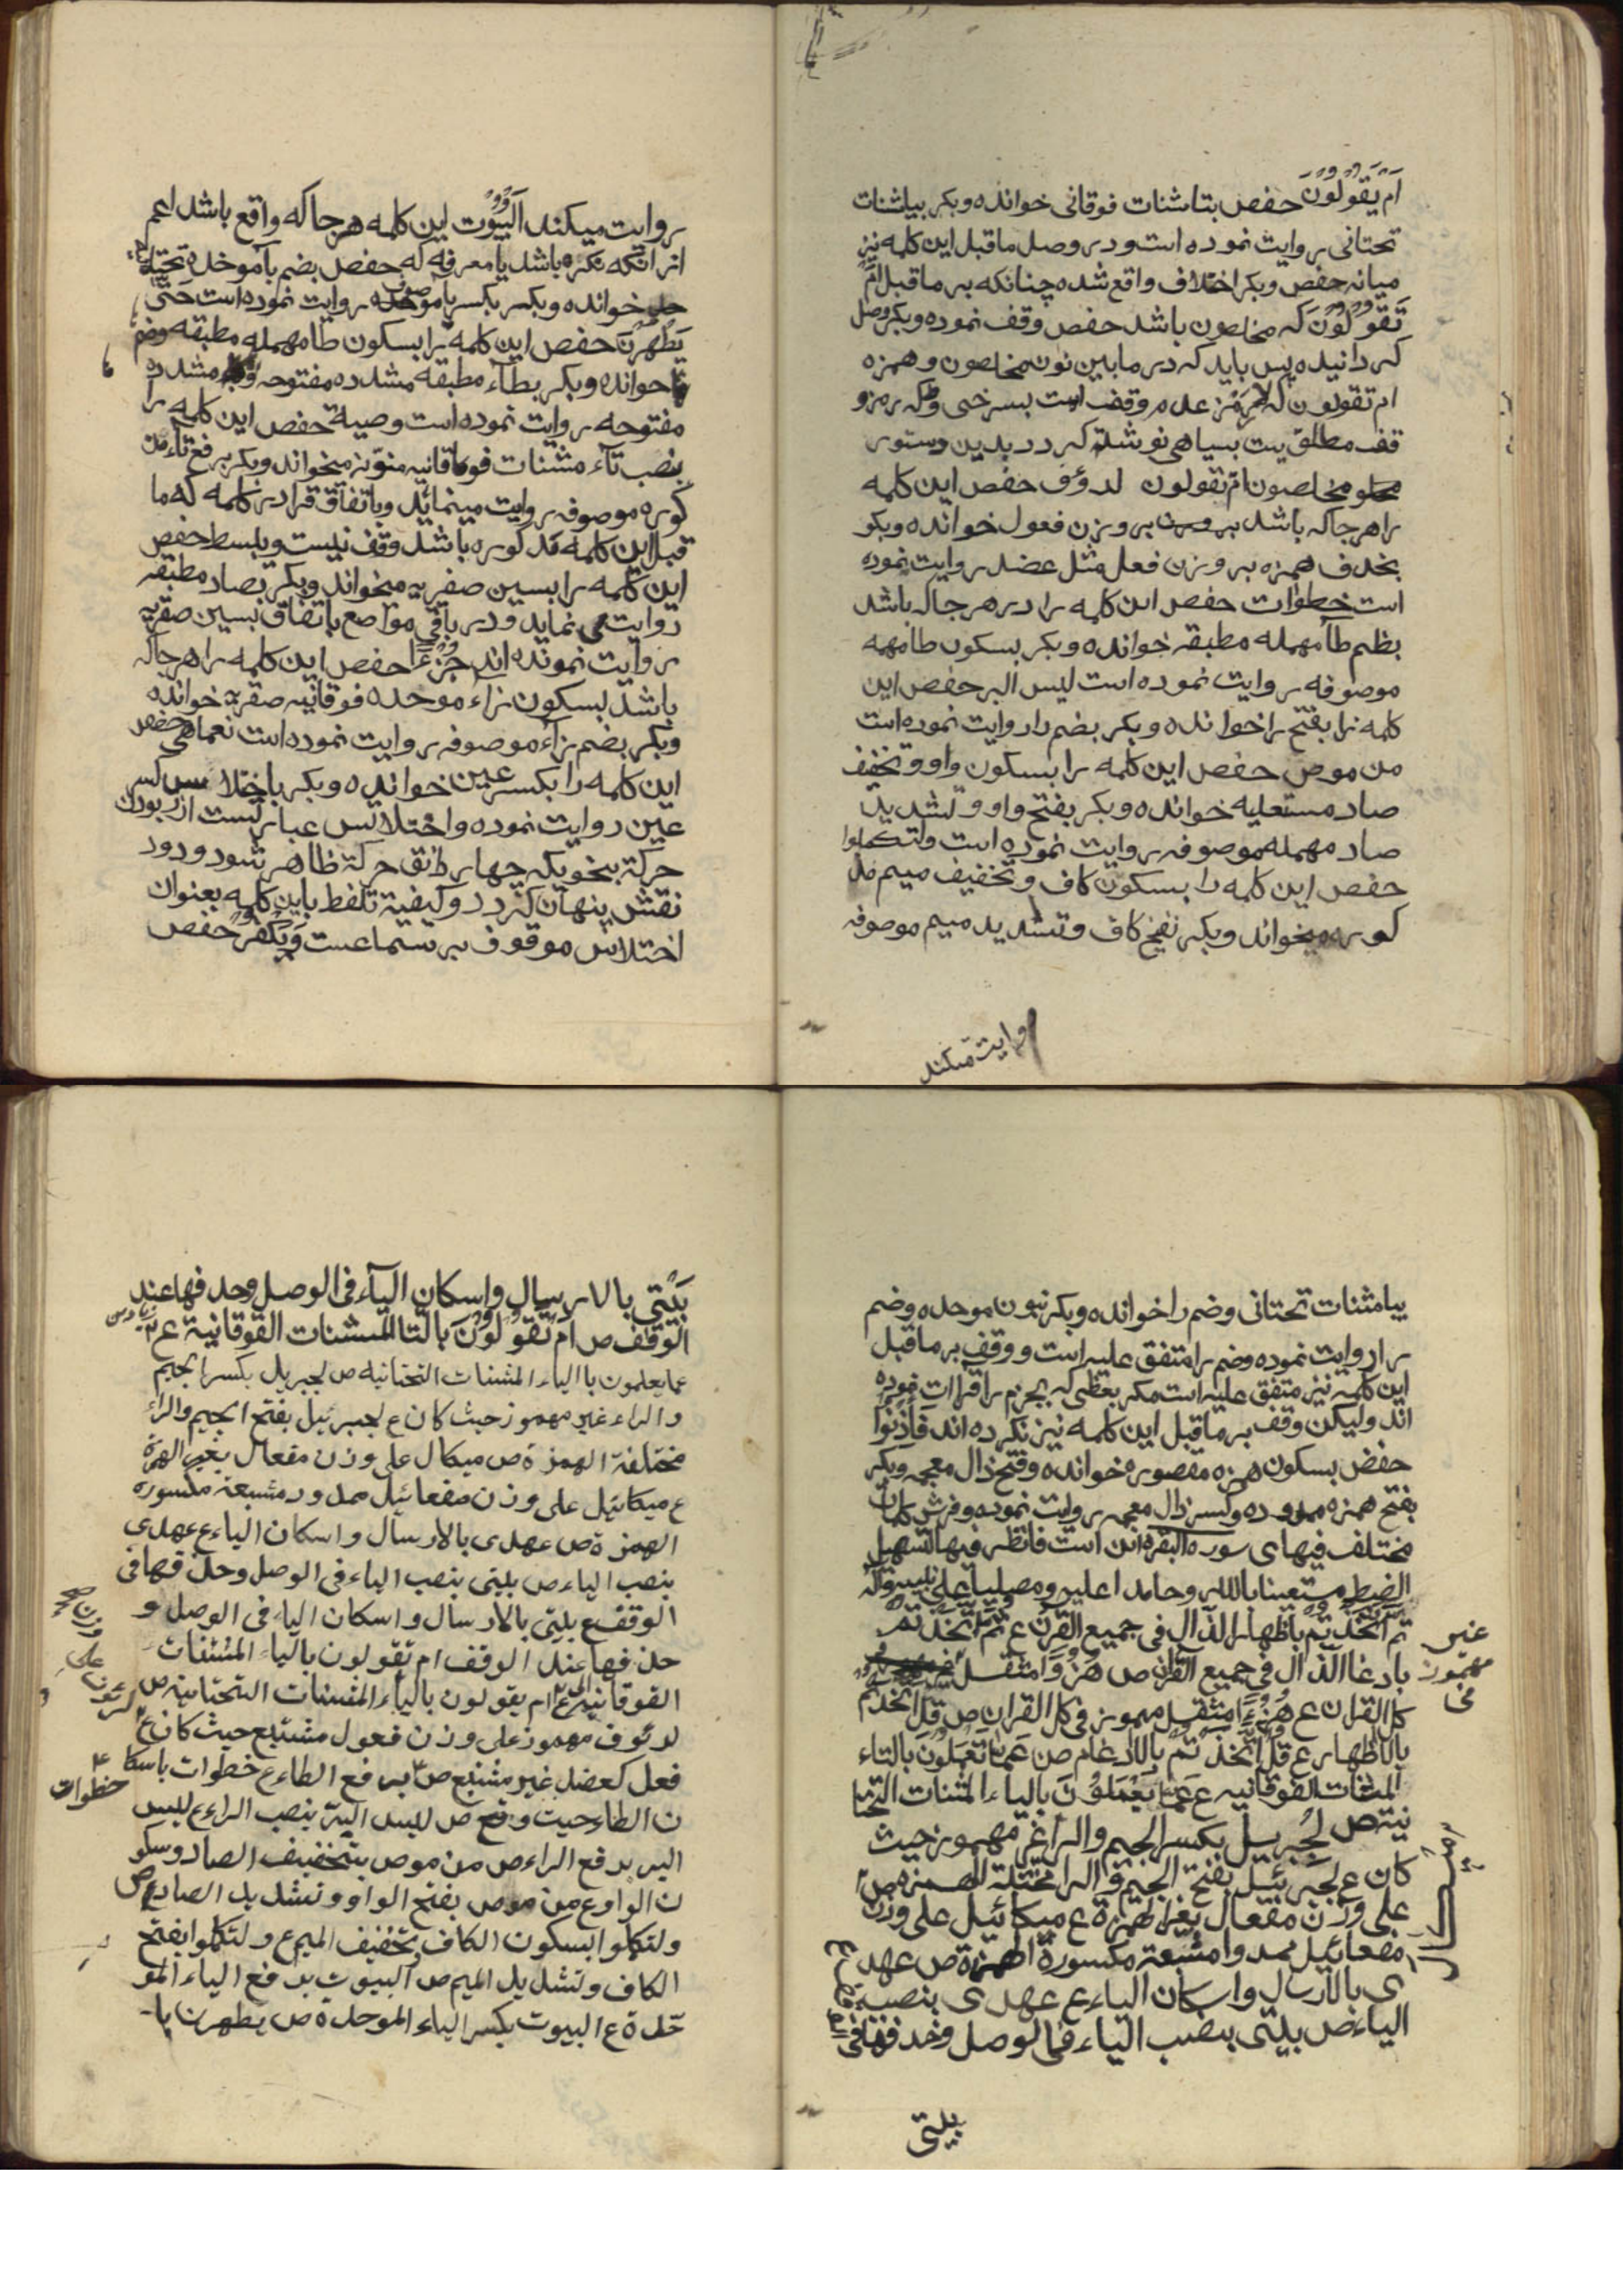 اَمْ يَقُوْلُوْنَ حفص بتاشنات فوقانی خوانده وبکر بیاشنات
تحتانی روایت نموده است ودر وصل ماقبل این کلمه نیز
میانه حفص وبکر اختلاف واقع شده چنانکه بر ماقبل اَمْ
تَقُوْلُوْنَ که مخلصون باشد حفص وقف نموده وبکر وصل
کردانیده پس باید که در مابین نون مخلصون وهمزه
ام تقولون که رمز عدم وقف است بسرخی و که رمز و
قف مطلق یست بسیاهی نوشته کردد بدین دستور
مخلصون ام تقولون لدؤف حفص این کلمه
را هرجاکه باشد بر وزن فعول خوانده وبکر
بحذف همزه بر وزن فعل مثل عضد روایت نموده
است خطوات حفص این کلمه را در هرجاکه باشد
بظم طا مهمله مطبقه خوانده وبکر بسکون طا مهمه
موصوفه روایت نموده است لیس البر حفص این
کلمه را بفتح را خوانده وبکر بضم را روایت نموده است
من موص حفص این کلمه را بسکون واو وتخفیف
صاد مستعلیه خوانده وبکر بفتح واو وتشدید
صاد مهمله موصوفه روایت نموده است ولتکملوا
حفص این کلمه را بسکون کاف وتخفیف میم مذ
کوره میخواند وبکر بفتح کاف وتشدید میم موصوفه
روایت میکند
روایت میکند اَلْبُيُوْت این کلمه هرجاکه واقع باشد اعم
از انکه نکره باشد یا معرفه که حفص بضم بآ موحده تحتیه
خوانده وبکر بکسر با موحده روایت نموده است حَتّٰی
يَطْهُرْنَ حفص این کلمه را بسکون طا مهمله مطبقه وضم
ها خوانده وبکر بطآء مطبقه مشدده مفتوحه مشدده
مفتوحه روایت نموده است وصیة حفص این کلمه را
بنصب تآء مثنات فوقانیه منوّنه میخواند وبکر برفع تاء مذ
کوره موصوفه روایت مینماید وباتفاق قرا در کلمه که ما
قبل این کلمه مذکوره باشد وقف نیست ویبسط حفص
این کلمه را بسین صفریه میخواند وبکر بصاد مطبقه
روایت می نماید ودر باقی مواضع باتفاق بسین صفریه
روایت نموده اند جُزْءًا حفص این کلمه را هرجاکه
باشد بسکون زاء موحده فوقانیه صفریه خوانده
وبکر بضم زآء موصوفه روایت نموده است نعماهی حفص
این کلمه را بکسر عین خوانده وبکر باختلاس کسر
عین روایت نموده واختلاس عبارتست از ربودن
حرکة بنحویکه چهار دانق حرکة ظاهر شود ودود
نقش پنهان کردد وکیفیة تلفظ باین کلمه بعنوان
اختلاس موقوف بر سماعست وَيُكَفِّرُ حفص
بیامثنات تحتانی وضم را خوانده وبکر بنون موحده وضم
را روایت نموده وضم را متفق علیه است ووقف بر ماقبل
این کلمه نیز متفق علیه است مکر بعظی که بجزم را قراات نموده
اند ولیکن وقف بر ماقبل این کلمه نیز نکرده اند فَأْذَنُوْا
حفص بسکون همزه مقصوره خوانده وفتح ذال معجمه وبکر
بفتح همزه ممدوده وکسر ذال معجمه روایت نموده وفرش کلمات
مختلف فیهای سورة البقره این است فانظر فیها لتسهیل
الضبط مستعینا بالله وحامدا علیه ومصلیا علی نبیه وآله
ثم اتخذتم باظهار الذال فی جمیع القرٰن ع ثم اتخذتم
بادغا الذال فی جمیع القرٰن ص هُزُوًا مثقل
غیر
مهموز
فی
کل القران ع هُزُءًا مثقل مهموز فی کل القران ص قل اتخذتم
بالاظهار ع قل اتخذتم بالادغام ص عما تعملون بالتاء
المثنات الفوقانیه ع عما یَعْمَلُوْنَ بالیاء المثنات التحتا
نیته ص لجبریل بکسر الجیم والرا غیر مهموز حیث
کان ع لجبرئیل بفتح الجیم والرا مختلة الهمزه ص
میکال
علی وزن مفعال بغیر الهمزة ع میکائیل علی وزن
مفعائیل ممدوا مشبعة مکسورة الهمزة ص عهد
ی بالارسال واسکان الیاء ع عهدی بنصب
الیاء ص بیتی بنصب الیاء فی الوصل وحذفها فی
بیتی
بَيْتِی بالارسال واسکان الیآء فی الوصل وحذفها عند
الوقف ص اَمْ تَقُوْلُوْنَ بالتا المثنات الفوقانیة ع
عما یعلمون باالیاء المثنات التحتانیه ص لجبریل بکسر الجیم
والراء غیر مهموز حیث کان ع لجبرئیل بفتح الجیم والراء
مختلفة الهمزة ص میکال علی وزن مفعال بغیر الهمزة
ع میکائیل علی وزن مفعائیل ممدود مشبعة مکسوره
الهمزة ص عهدی بالارسال واسکان الیاء ع عهدی
بنصب الیاء ص بیتی بنصب الیاء فی الوصل وحذفها فی
الوقف ع بیتی بالارسال واسکان الیاء فی الوصل و
حذفها عند الوقف ام تقولون بالیاء المثنات
الفوقانیه ع ام یقولون بالیاء المثنات التحتانیة ص
لرئوف مهموز علی وزن فعول مشبع حیث کان ع
لرئوف
علی
وزن
فعل کعضد غیر مشبع ص برفع الطاء ع خطوات باسکا
خطوات
ن الطاء حیث وقع ص لیس البر بنصب الراء ع لیس
البر برفع الراء ص من موص بتخفیف الصاد وسکو
ن الواو ع من موص بفتح الواو وتشدید الصاد ص
ولتکلوا بسکون الکاف وتخفیف المیم ع ولتکلوا بفتح
الکاف وتشدید المیم ص البیوت برفع الیاء المو
حدة ع البیوت بکسر الیاء الموحدة ص یطهرن با